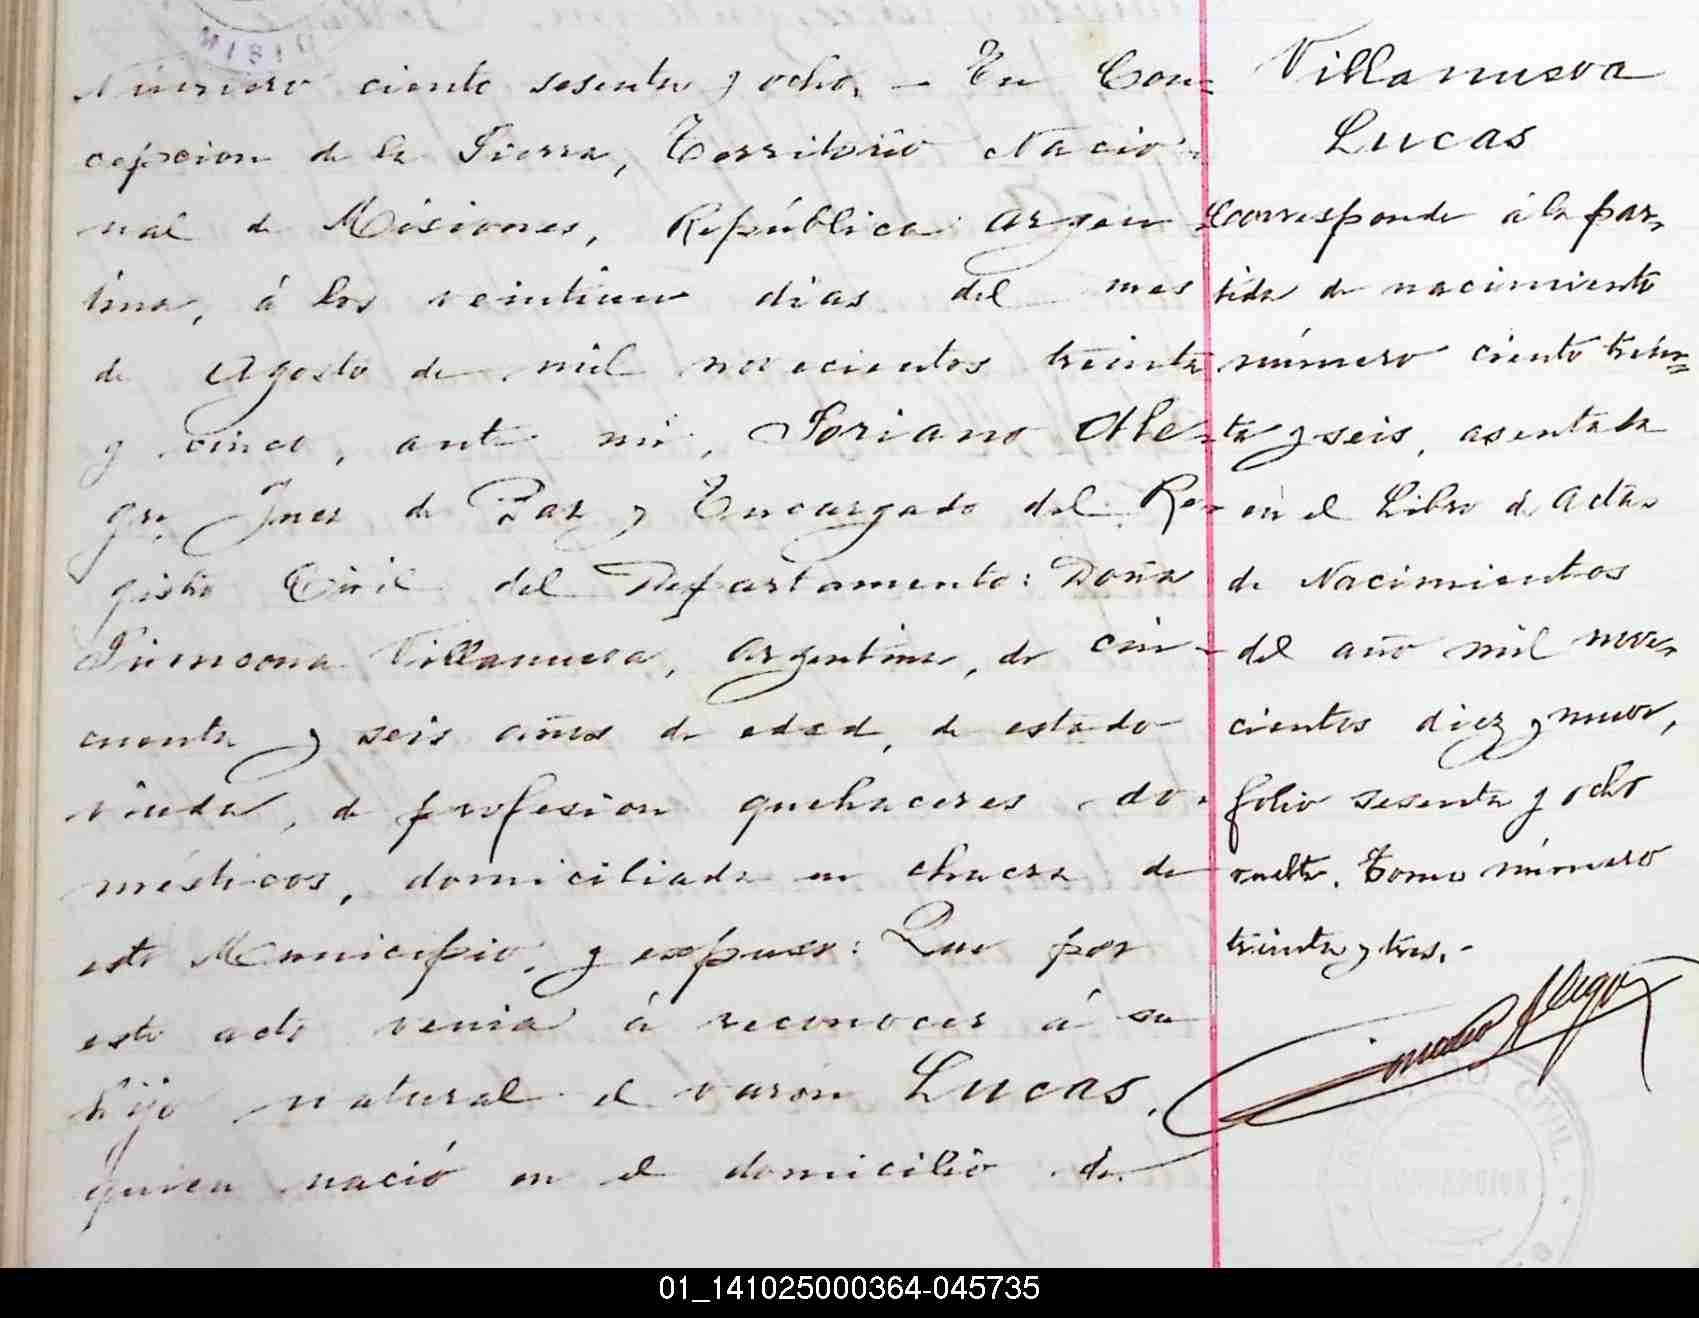 MISIO
Número ciento sesenta y ocho. — En Con=
cepcion de la Sierra, Territorio Nacio-
nal de Misiones, República Argen
tina, á los veintiun dias del mes
de Agosto de mil novecientos treinta
y cinco, ante mi, Soriano Ale-
gre, Juez de Paz y Encargado del Re-
gistro Civil del Departamento: Doña
Villanueva, argentina, de cin-
cuenta y seis años de edad, de estado
viuda, de profesion quehaceres do-
mésticos, domiciliada en chacra de
este Municipio, y expuso: Que por
este acto venia á reconocer á su
hijo natural el varón Lucas,
quien nació en el domicilio de
Villanueva
Lucas
Corresponde á la par-
tida de nacimiento
número ciento trein=
ta y seis, asentada
en el Libro de Actas
de Nacimientos
del año mil nove-
cientos diez y nueve,
folio sesenta y ocho
vuelta. Tomo número
treinta y tres.-
01_141025000364-045735